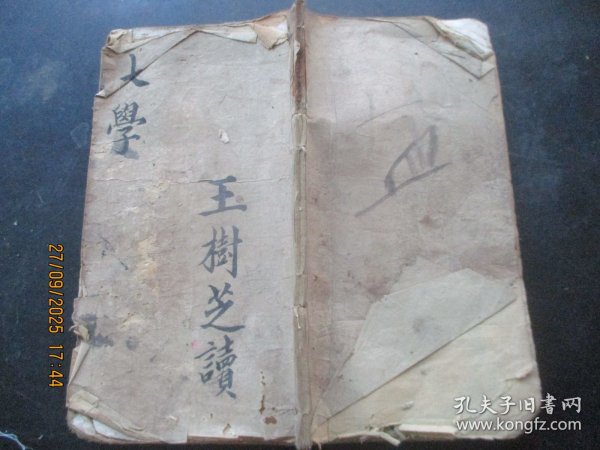 大學
王樹芝讀
27/09/2025 17:44
孔夫子旧书网
www.kongfz.com